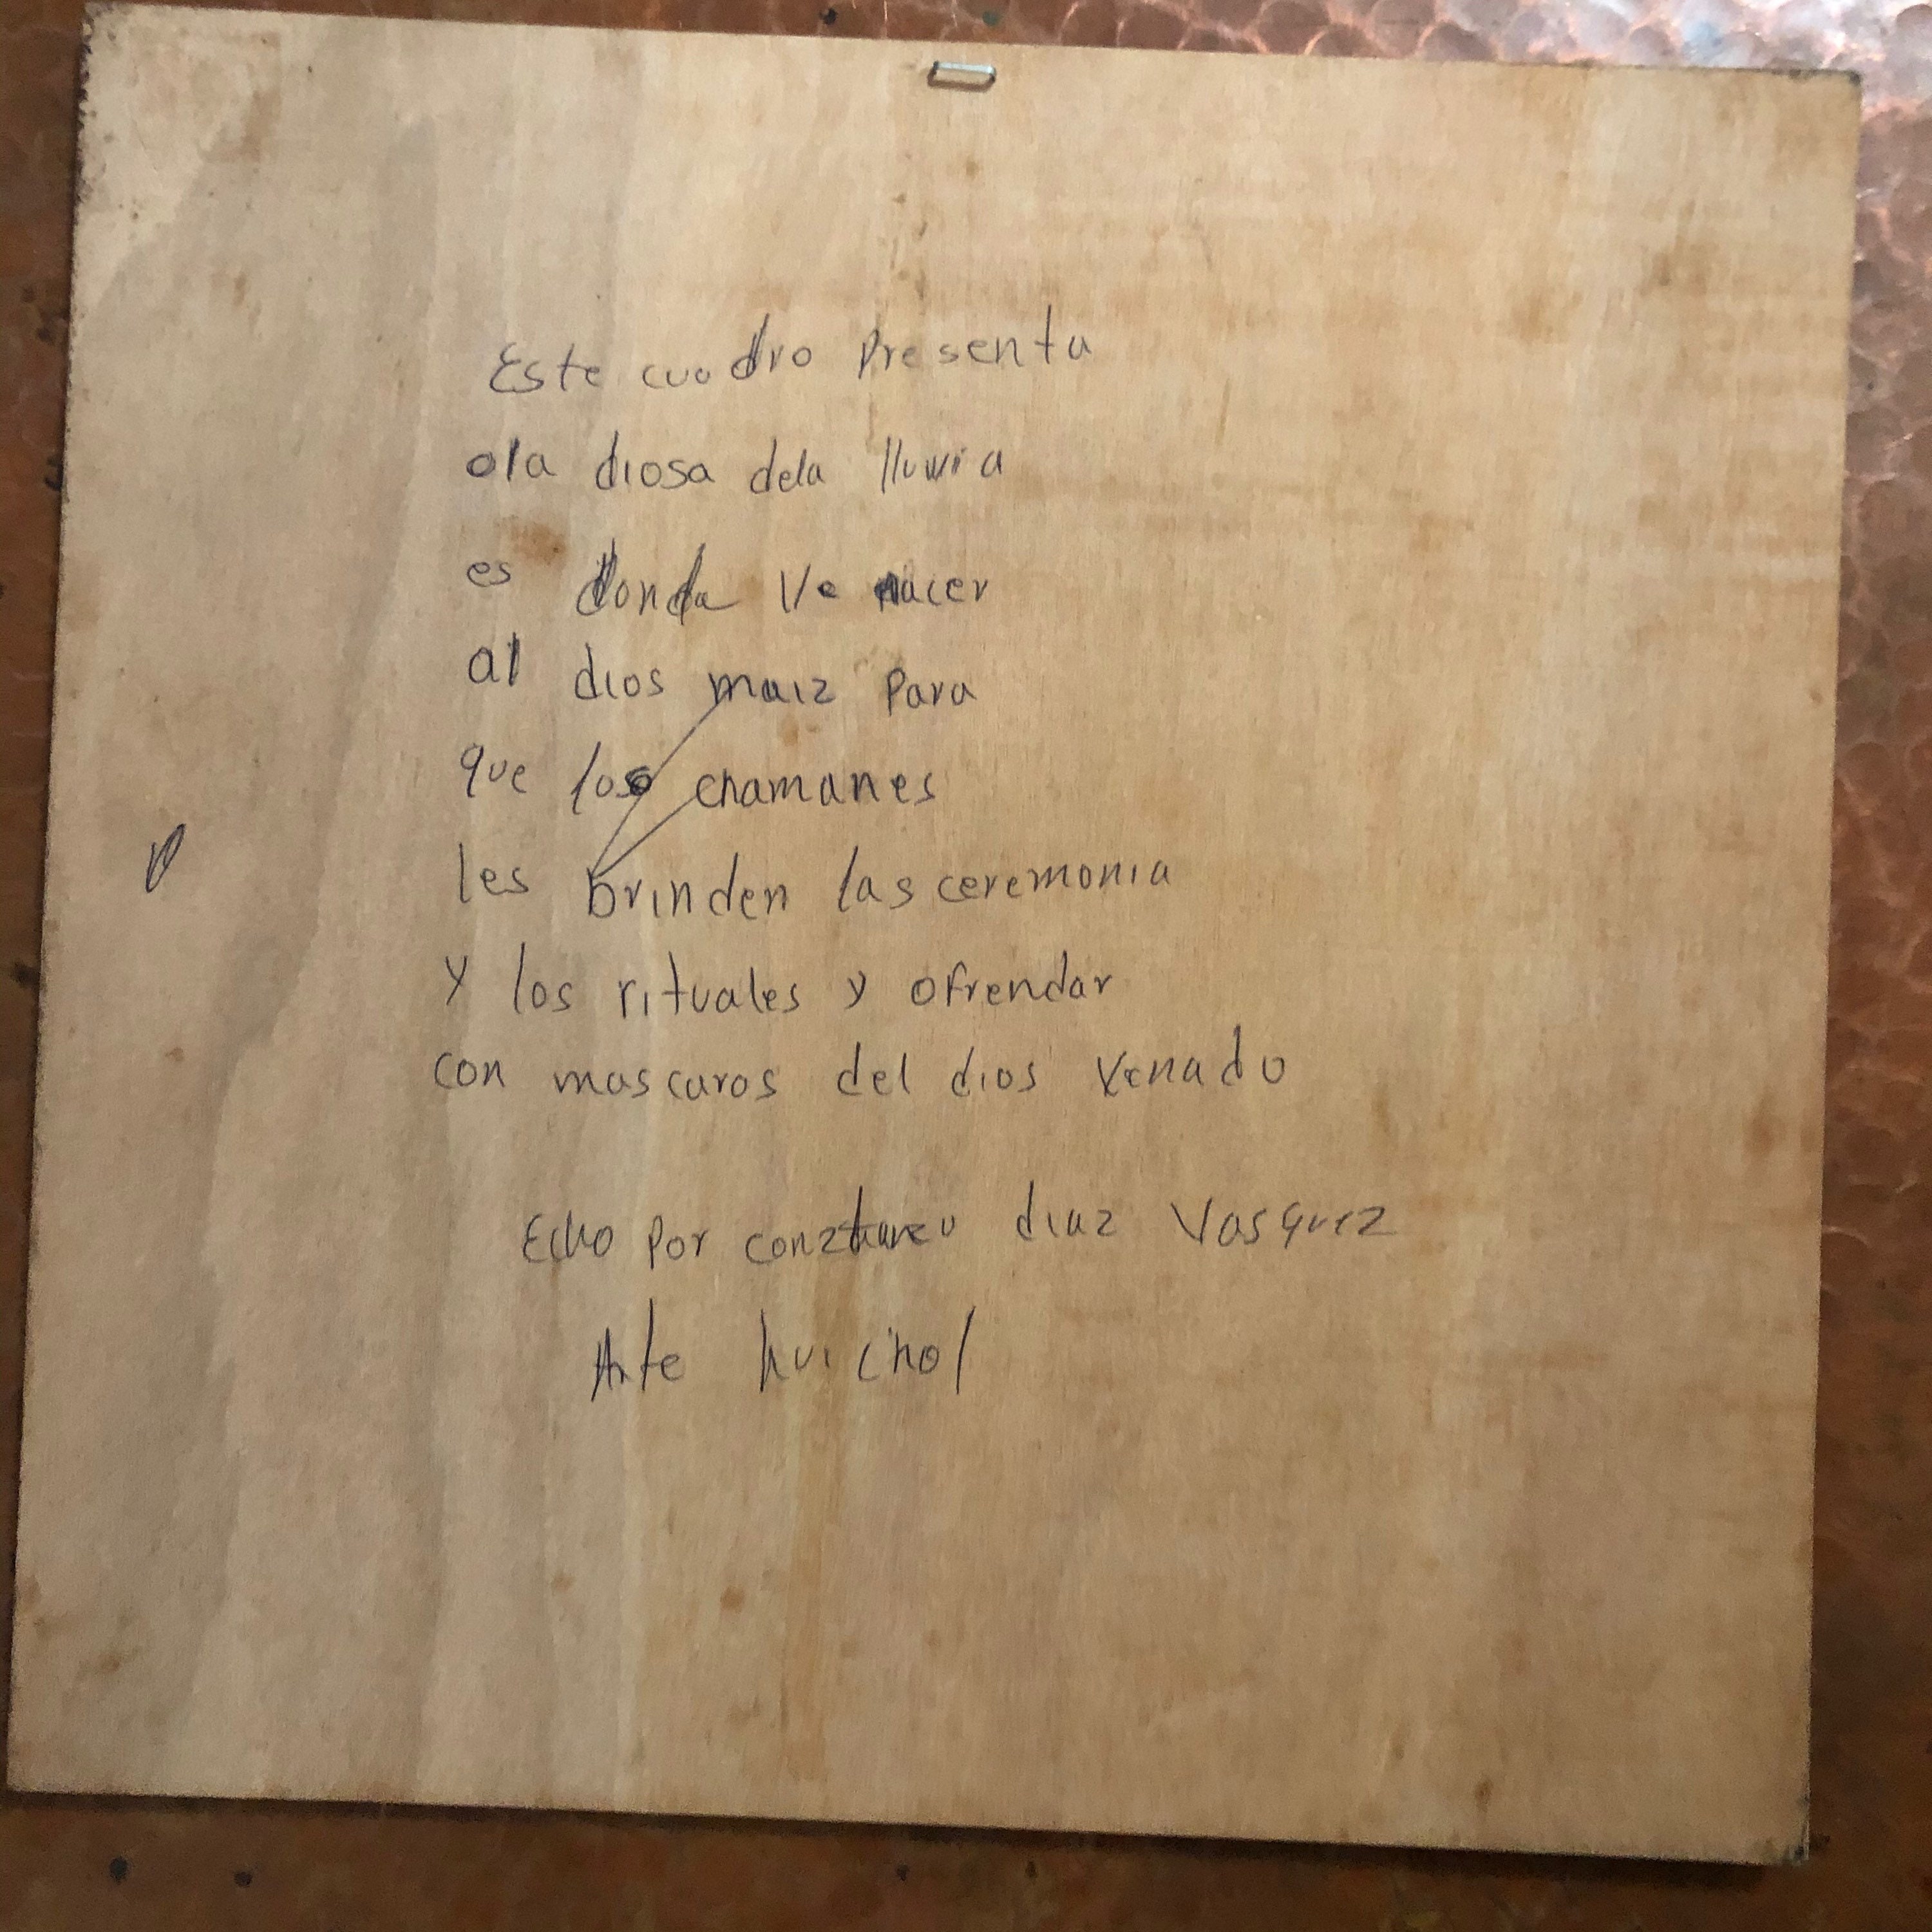 Este cuadro Presenta
ala diosa dela lluvia
es donde Ve nacer
al dios maiz Para
que los chamanes
les brinden las ceremonia
y los rituales y ofrendar
con mascaras del dios Venado
Echo Por diaz Vasquez
Arte huichol